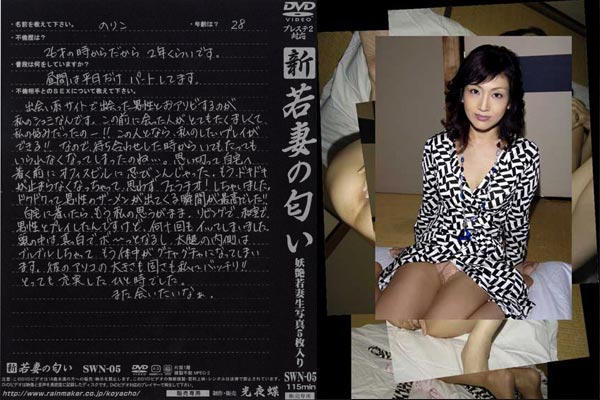 ・名前を教えて下さい。 のりこ ・年齢は? 28
・不倫歴は?
26才の時からだから 2年くらいです。
・普段は何をしていますか?
昼間は平日だけ パートしてます。
・不倫相手とのSEXについて教えて下さい。
出会い系サイトで出会った男性とおアソビするのが
私のシュミなんです。この前に会った人がとてもたくましくて
私の好みだったの―!! この人となら、私のしたいプレイが
できる!! なので、待ち合わせした時からいてもたっても
いられなくなってしまったのね…。思い切って自宅へ
着く前にオフィスビルに忍びこんじゃった。もうドキドキ
が止まらなくなっちゃって、思わずフェラチオ!しちゃいました。
ドクドクって男性のザーメンが出てくる瞬間が最高だし!!
自宅に着いたら、もう私の思うがまま。リビングで、和室で、
男性とプレイしたんですけど、何十回もイッてしまいました
頭の中は、真白でボ〜ッとなるし、太腿の内側は
ブルブルしちゃって、もう体中がグチャグチャになってしまい
ます。彼のアソコの大きさも固さも私にバッチリ!!
とっても充実したひと時でした。
また会いたいなぁ。
新 若妻の匂い SWN-05
DVD VIDEO
片面1層
複製不能
MPEG-2
http://www.rainmaker.co.jp/koyacho/
販売専用
制作・販売 光夜蝶
DVD
VIDEO
プレステ2
対応
新 若妻の匂い
妖艶若妻生写真5枚入り
SWN-05
115min
販売専用